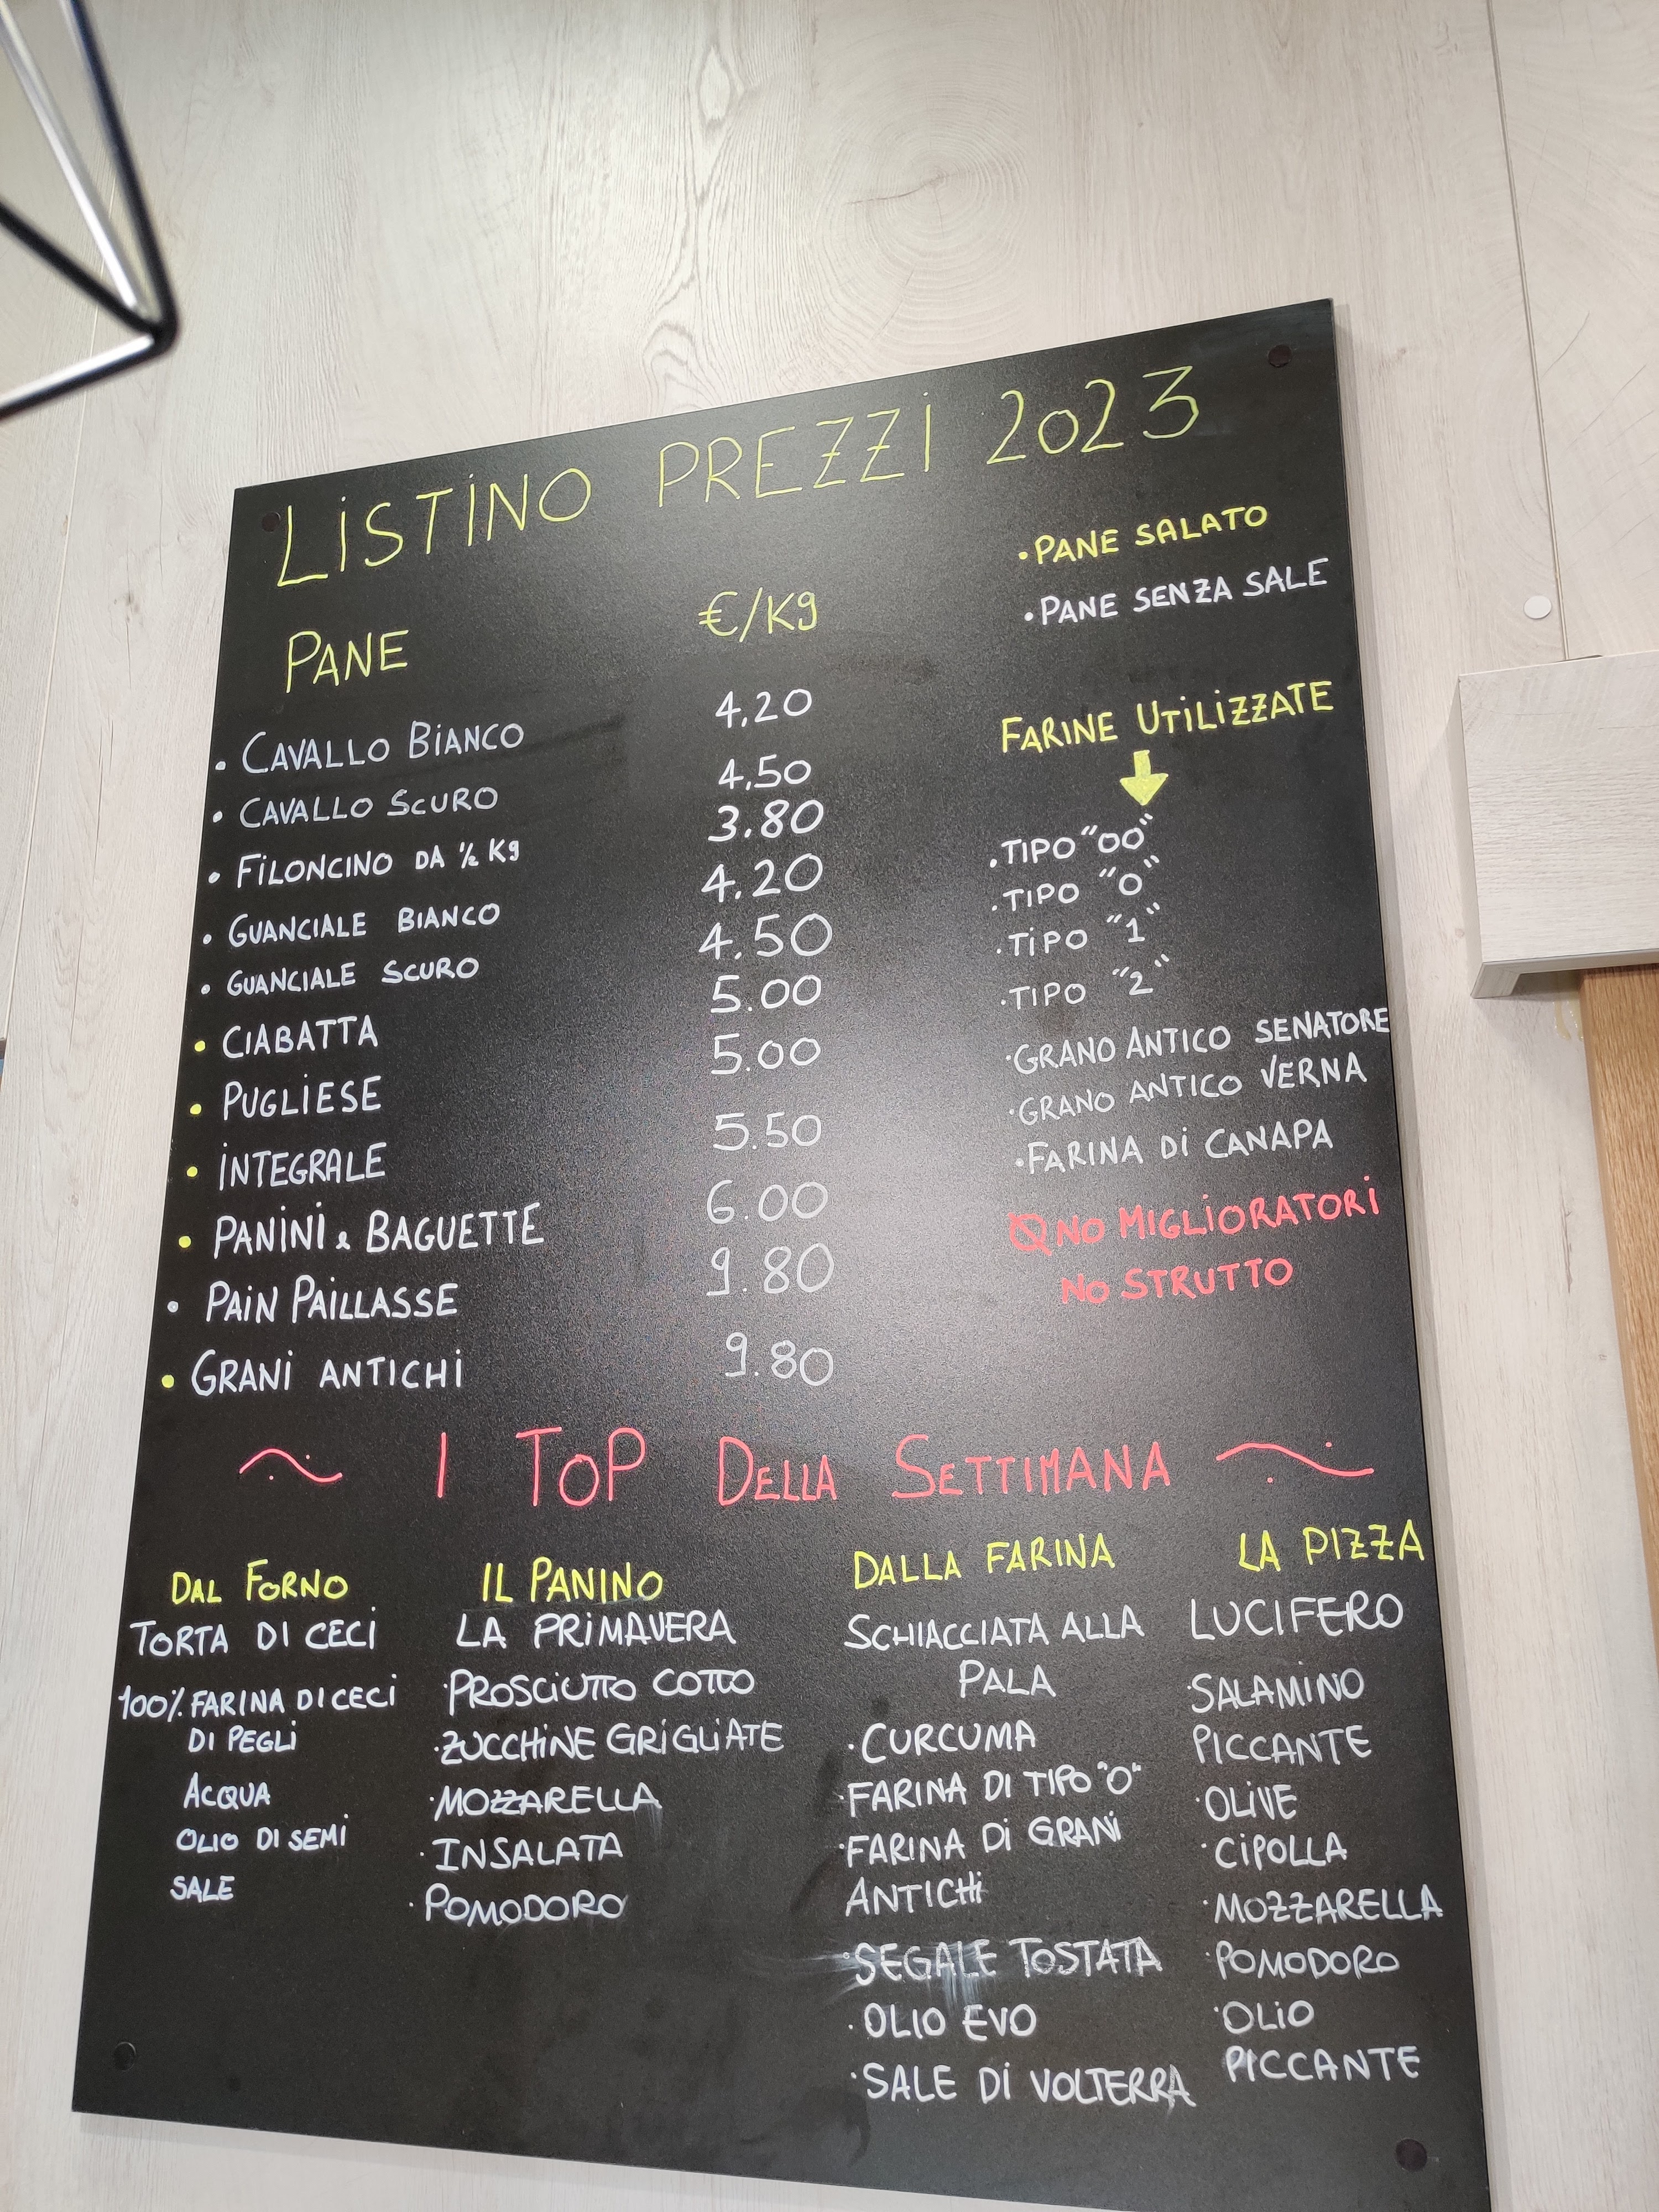 LISTINO PREZZI 2023
PANE €/Kg
• CAVALLO BIANCO 4,20
• CAVALLO SCURO 4,50
• FILONCINO DA ½ Kg 3.80
• GUANCIALE BIANCO 4.20
• GUANCIALE SCURO 4.50
• CIABATTA 5.00
• PUGLIESE 5.00
• INTEGRALE 5.50
• PANINI & BAGUETTE 6.00
• PAIN PAILLASSE 9.80
• GRANI ANTICHI 9.80
• PANE SALATO
• PANE SENZA SALE
FARINE UTILIZZATE
• TIPO "00"
• TIPO "0"
• TIPO "1"
• TIPO "2"
• GRANO ANTICO SENATORE
• GRANO ANTICO VERNA
• FARINA DI CANAPA
NO MIGLIORATORI
NO STRUTTO
I TOP DELLA SETTIMANA
DAL FORNO
TORTA DI CECI
100% FARINA DI CECI
DI PEGLI
ACQUA
OLIO DI SEMI
SALE
IL PANINO
LA PRIMAVERA
• PROSCIUTTO COTTO
• ZUCCHINE GRIGLIATE
• MOZZARELLA
• INSALATA
• POMODORO
DALLA FARINA
SCHIACCIATA ALLA
PALA
• CURCUMA
• FARINA DI TIPO "O"
• FARINA DI GRANI
ANTICHI
• SEGALE TOSTATA
• OLIO EVO
• SALE DI VOLTERRA
LA PIZZA
LUCIFERO
• SALAMINO
PICCANTE
• OLIVE
• CIPOLLA
• MOZZARELLA
• POMODORO
• OLIO
PICCANTE